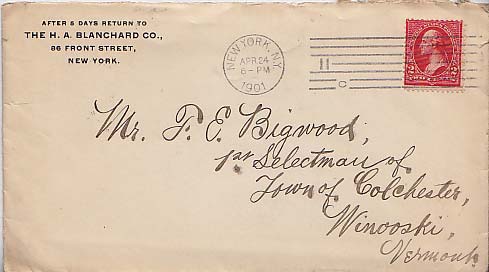 AFTER 5 DAYS RETURN TO
THE H. A. BLANCHARD CO.,
86 FRONT STREET,
NEW YORK.
NEW YORK, N.Y.
APR 24
6-PM
1901
11
C
2 2
TWO CENTS
Mr. F. E. Bigwood,
1st Selectman of
Town of Colchester,
Winooski,
Vermont.